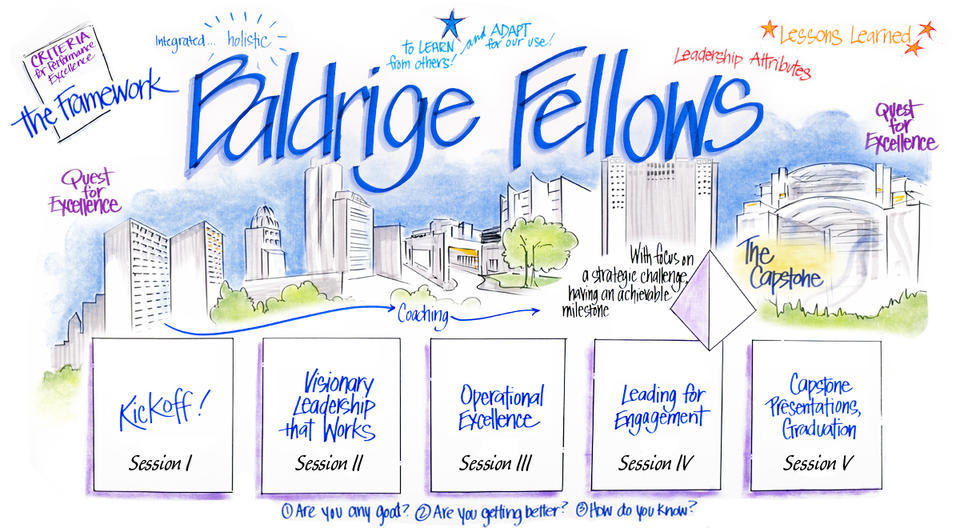 CRITERIA
for Performance
Excellence
the Framework
Integrated... holistic
to LEARN and ADAPT
from others! for our use!
Lessons Learned
Leadership Attributes
Baldrige Fellows
Quest
for
Excellence
Quest
for
Excellence
With focus on
a strategic challenge,
having an achievable
milestone
The
Capstone
Coaching
Kickoff!
Session I
Visionary
Leadership
that Works
Session II
Operational
Excellence
Session III
Leading for
Engagement
Session IV
Capstone
Presentations,
Graduation
Session V
① Are you any good? ② Are you getting better? ③ How do you know?